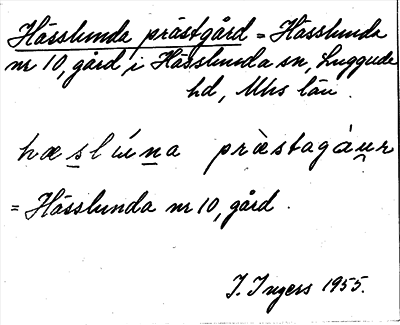 Hässlunda prästgård = Hässlunda
nr 10, gård i Hässlunda sn, Luggude
hd, Mhs län.
hæslúna præ̀stagáur
= Hässlunda nr 10, gård.
I. Ingers 1955.